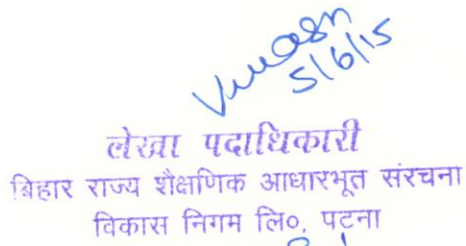 5/6/15
लेखा पदाधिकारी
बिहार राज्य शैक्षणिक आधारभूत संरचना
विकास निगम लि०, पटना